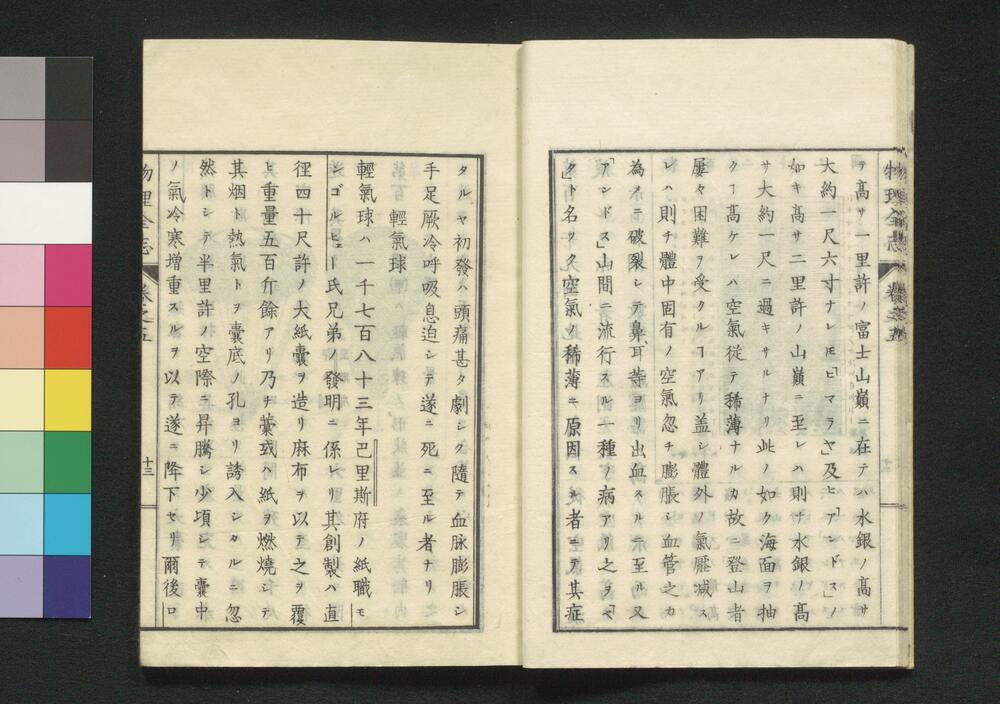 物理全志 卷之五
ヲ高サ一里許ノ富士山巓ニ在テハ水銀ノ高サ
大約一尺六寸ナレ𪜈「ヒマラヤ」及ヒ「アンドス」ノ
如キ高サ二里許ノ山巓ニ至レハ則チ水銀ノ高
サ大約一尺ニ過キサルナリ此ノ如ク海面ヲ抽
クヿ高ケレハ空氣從テ稀薄ナルカ故ニ登山者
屢々困難ヲ受クルヿアリ盖シ體外ノ氣壓減ス
レハ則チ體中固有ノ空氣忽チ膨脹シ血管之カ
為メニ破裂シテ鼻耳等ヨリ出血スルニ至ル又
「アンドス」山間ニ流行スル一種ノ病アリ之ヲ「マ
クト」名ツク空氣ノ稀薄ニ原因スル者ニテ其症
タルヤ初發ハ頭痛甚タ劇シク隨テ血脉膨脹シ
手足厥冷呼吸息迫シテ遂ニ死ニ至ル者ナリ
輕氣球
輕氣球ハ一千七百八十三年巴里斯府ノ紙職モ
ンゴルヒェー氏兄弟ノ發明ニ係レリ其創製ハ直
徑四十尺許ノ大紙囊ヲ造リ麻布ヲ以テ之ヲ覆
ヒ重量五百斤餘アリ乃チ藁或ハ紙ヲ燃燒シテ
其烟ト熱氣トヲ囊底ノ孔ヨリ誘入シタルニ忽
然トシテ半里許ノ空際ニ昇騰シ少頃シテ囊中
ノ氣冷寒增重スルヲ以テ遂ニ降下セリ爾後ロ
物理全志 卷之五 十三